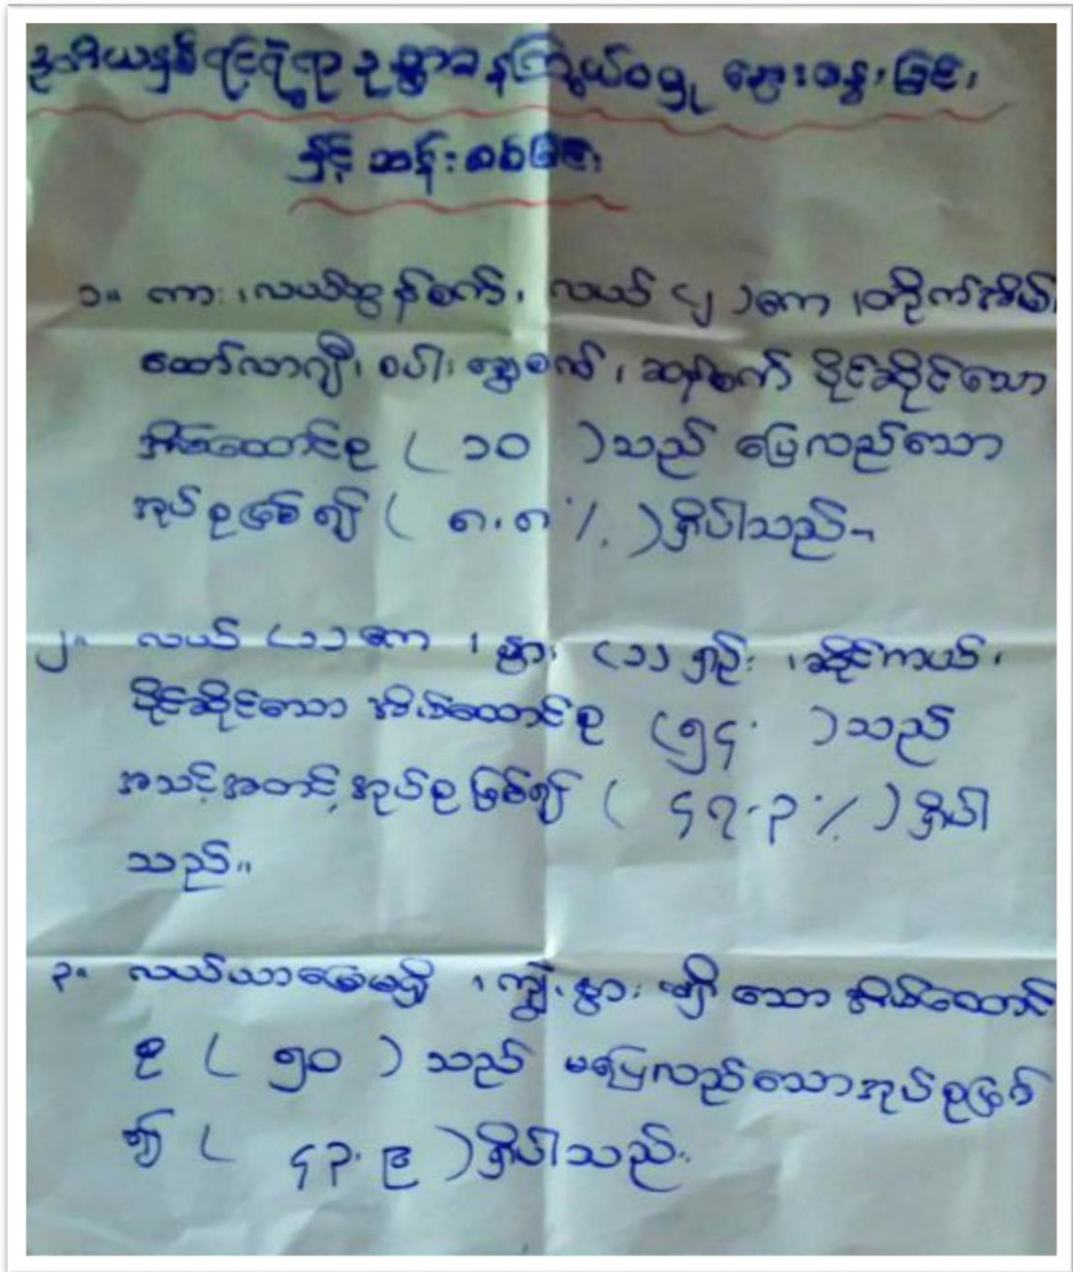 ဒုတိယနှစ် ဥစ္စာဓနကြွယ်ဝမှု ဆွေးနွေးခြင်း
နှင့် ဆန်းစစ်ခြင်း
၁။ ကား၊ လယ်ထွန်စက်၊ လယ် (၂) ဧက၊ တိုက်အိမ်၊
ထော်လာဂျီ၊ စပါးခြွေစက်၊ ဆန်စက် ပိုင်ဆိုင်သော
အိမ်ထောင်စု ( ၁၀ ) သည် ပြေလည်သော
အုပ်စုဖြစ်၍ ( ၈.၈ % ) ရှိပါသည်။
၂။ လယ် (၁) ဧက ၊ နွား (၁) ရှဉ်း ၊ ဆိုင်ကယ်၊
ပိုင်ဆိုင်သော အိမ်ထောင်စု (၅၄ ) သည်
အသင့်အတင့်အုပ်စုဖြစ်၍ ( ၄၇.၃ % ) ရှိပါ
သည်။
၃။ လယ်ယာမြေမရှိ ၊ ကျွဲ၊ နွား သော အိမ်ထောင်
စု ( ၅၀ ) သည် မပြေလည်သောအုပ်စုဖြစ်
၍ ( ၄၃.၉ ) ရှိပါသည်။